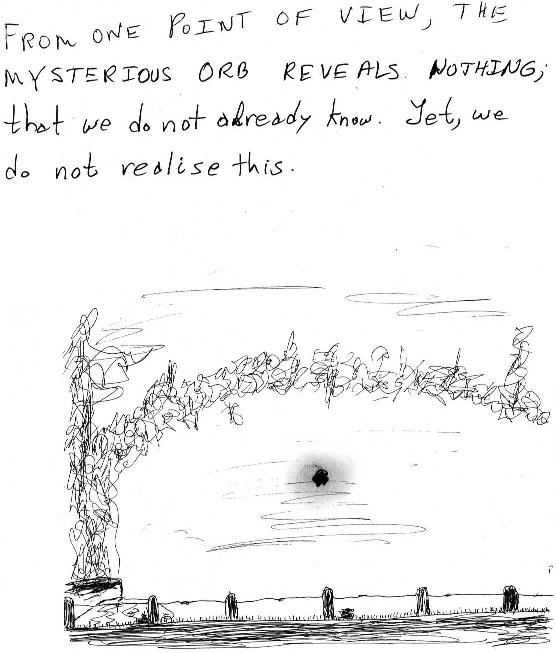 FROM ONE POINT OF VIEW, THE
MYSTERIOUS ORB REVEALS NOTHING;
that we do not already know. Yet, we
do not realise this.